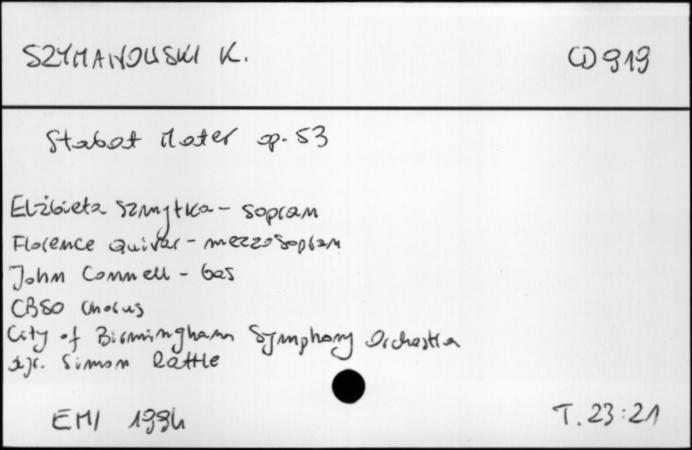 SZYMANOWSKI K. CD 919
Stabat Mater op. 53
Elżbieta Szmytka - sopran
Florence Quivar - mezzosopran
John Connell - bas
CBSO Chorus
City of Birmingham Symphony Orchestra
dyr. Simon Rattle
EMI 1994 T. 23:21